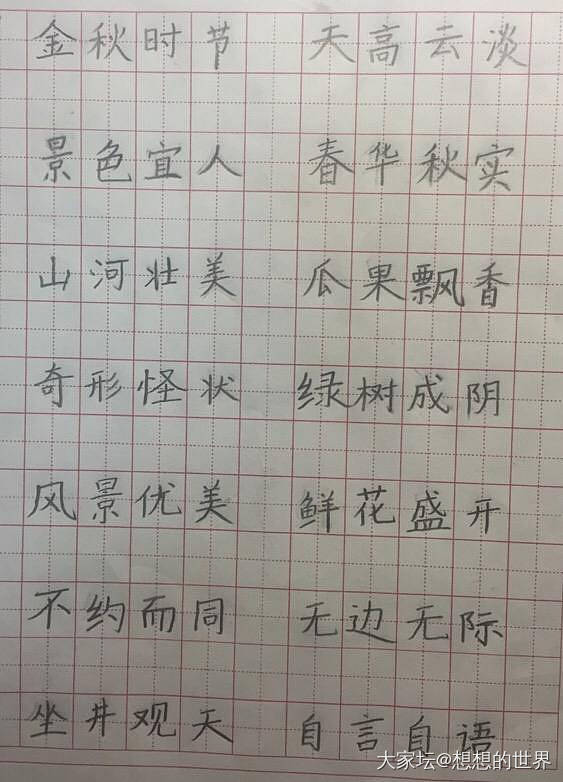 金秋时节 天高云淡
景色宜人 春华秋实
山河壮美 瓜果飘香
奇形怪状 绿树成阴
风景优美 鲜花盛开
不约而同 无边无际
坐井观天 自言自语
大家坛@想想的世界